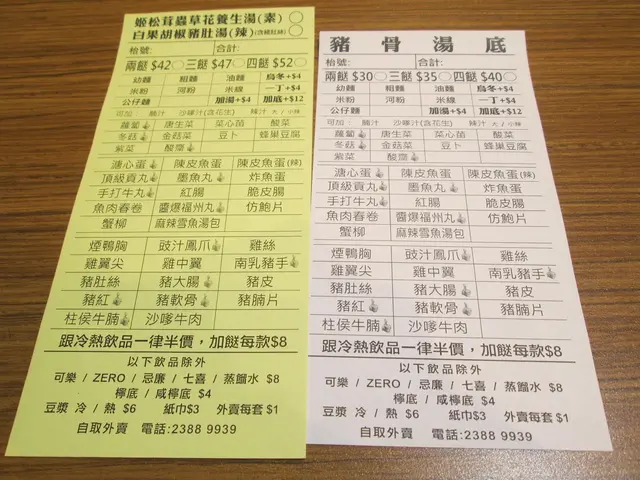 姬松茸蟲草花養生湯(素)
白果胡椒豬肚湯(辣)(含豬肚絲)
枱號: 合計:
兩餸 $42 三餸 $47 四餸 $52
幼麵 粗麵 油麵 烏冬+$4
米粉 河粉 米線 一丁+$4
公仔麵 加湯+$4 加底+$12
可加: 腩汁 沙嗲汁(含花生) 辣汁 大 / 小辣
蘿蔔 唐生菜 菜心苗 酸菜
冬菇 金菇菜 豆卜 蜂巢豆腐
紫菜 酸齋
溏心蛋 陳皮魚蛋 陳皮魚蛋(辣)
頂級貢丸 墨魚丸 炸魚蛋
手打牛丸 紅腸 脆皮腸
魚肉春卷 醬爆福州丸 仿鮑片
蟹柳 麻辣雪魚湯包
煙鴨胸 豉汁鳳爪 雞絲
雞翼尖 雞中翼 南乳豬手
豬肚絲 豬大腸 豬皮
豬紅 豬軟骨 豬腩片
柱侯牛腩 沙嗲牛肉
跟冷熱飲品一律半價，加餸每款$8
以下飲品除外
可樂 / ZERO / 忌廉 / 七喜 / 蒸餾水 $8
檸底 / 咸檸底 $4
豆漿 冷 / 熱 $6 紙巾$3 外賣每套$1
自取外賣 電話:2388 9939
豬骨湯底
枱號: 合計:
兩餸 $30 三餸 $35 四餸 $40
幼麵 粗麵 油麵 烏冬+$4
米粉 河粉 米線 一丁+$4
公仔麵 加湯+$4 加底+$12
可加: 腩汁 沙嗲汁(含花生) 辣汁 大 / 小辣
蘿蔔 唐生菜 菜心苗 酸菜
冬菇 金菇菜 豆卜 蜂巢豆腐
紫菜 酸齋
溏心蛋 陳皮魚蛋 陳皮魚蛋(辣)
頂級貢丸 墨魚丸 炸魚蛋
手打牛丸 紅腸 脆皮腸
魚肉春卷 醬爆福州丸 仿鮑片
蟹柳 麻辣雪魚湯包
煙鴨胸 豉汁鳳爪 雞絲
雞翼尖 雞中翼 南乳豬手
豬肚絲 豬大腸 豬皮
豬紅 豬軟骨 豬腩片
柱侯牛腩 沙嗲牛肉
跟冷熱飲品一律半價，加餸每款$8
以下飲品除外
可樂 / ZERO / 忌廉 / 七喜 / 蒸餾水 $8
檸底 / 咸檸底 $4
豆漿 冷 / 熱 $6 紙巾$3 外賣每套$1
自取外賣 電話:2388 9939